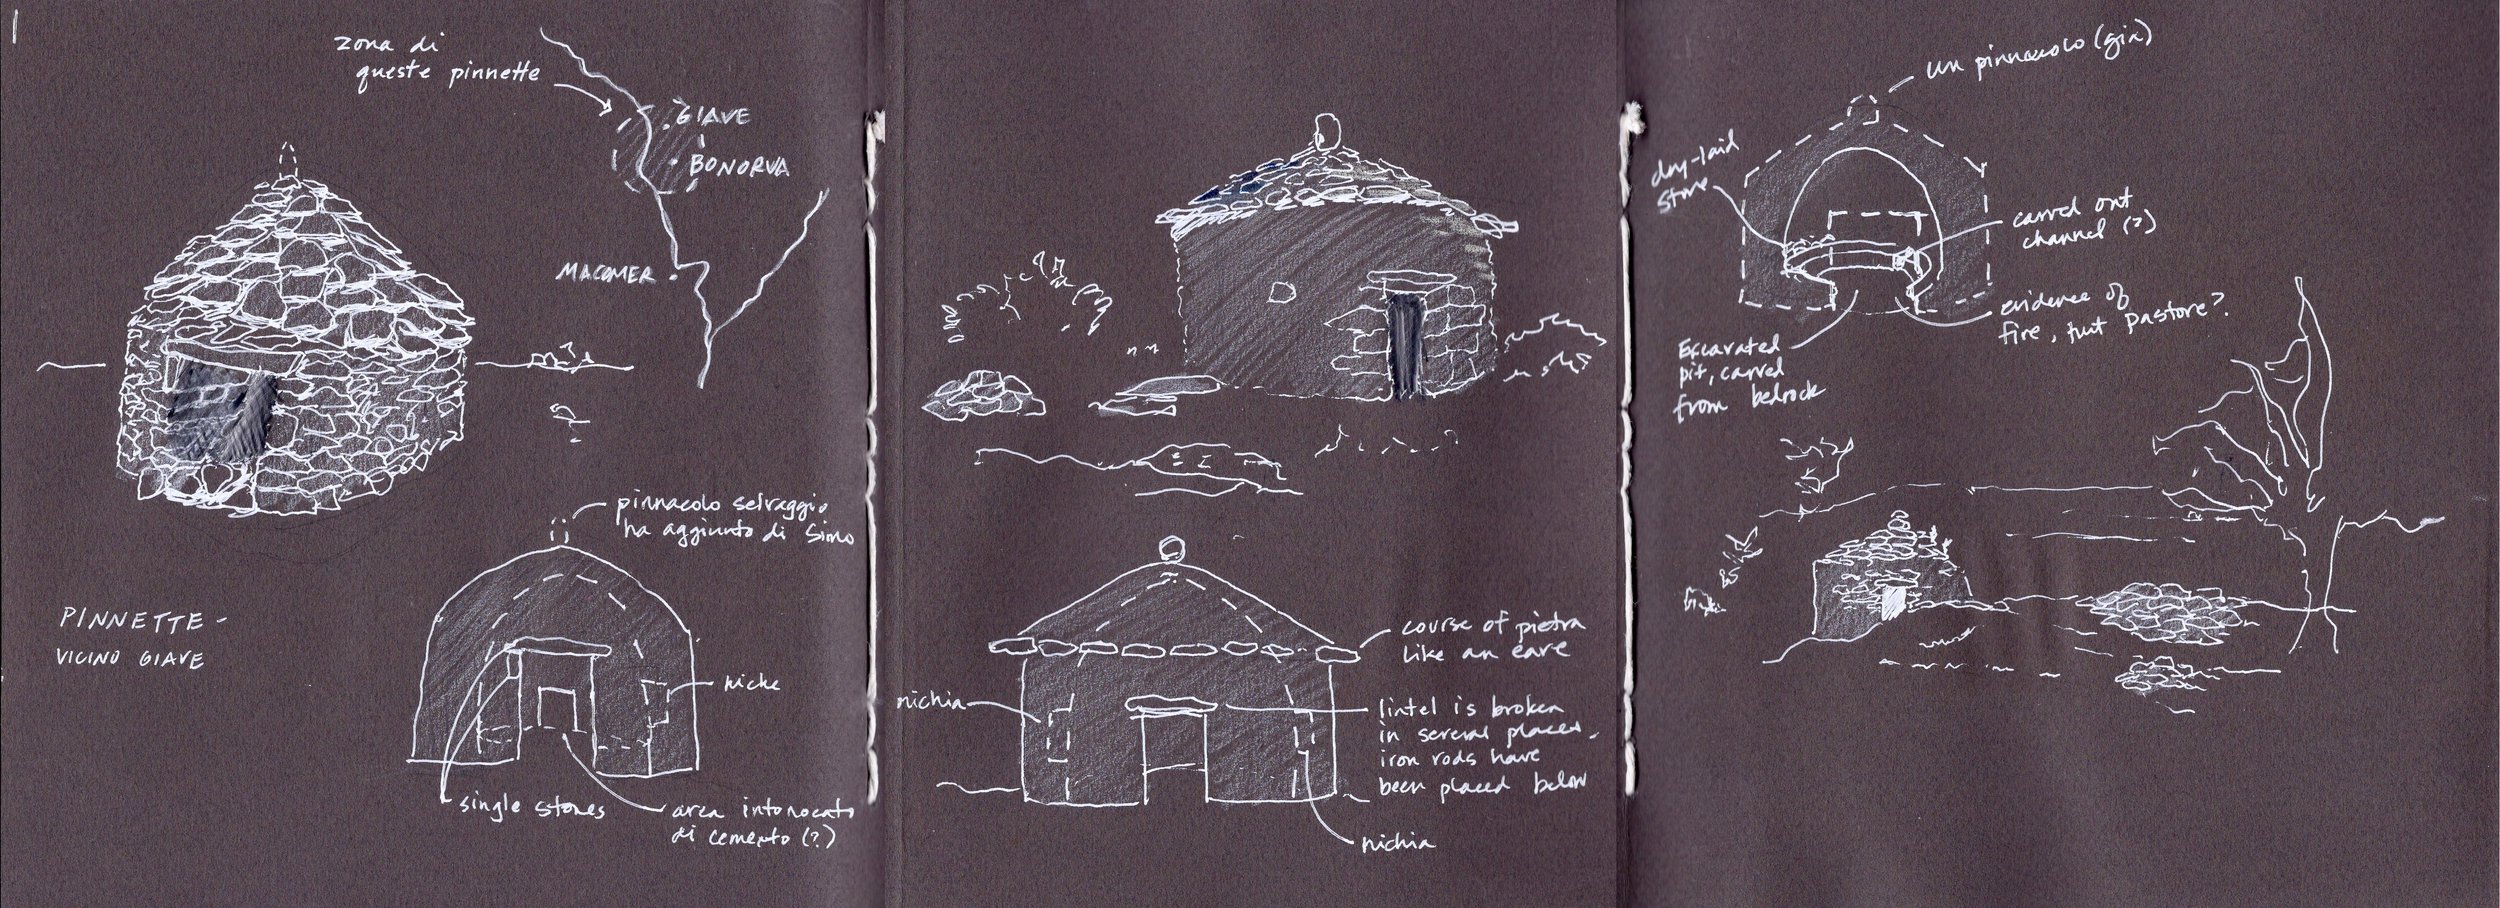 zona di
queste pinnette
GIAVE
BONORVA
MACOMER
pinnacolo selvaggio
ha aggiunto di Simo
PINNETTE -
VICINO GIAVE
niche
single stones
area intonocato
di cemento (?)
course of pietra
like an eave
nichia
lintel is broken
in several places.
iron rods have
been placed below
nichia
un pinnacolo (già)
dry-laid
stone
carved out
channel (?)
evidence of
fire, but pastore?
Excavated
pit, carved
from bedrock